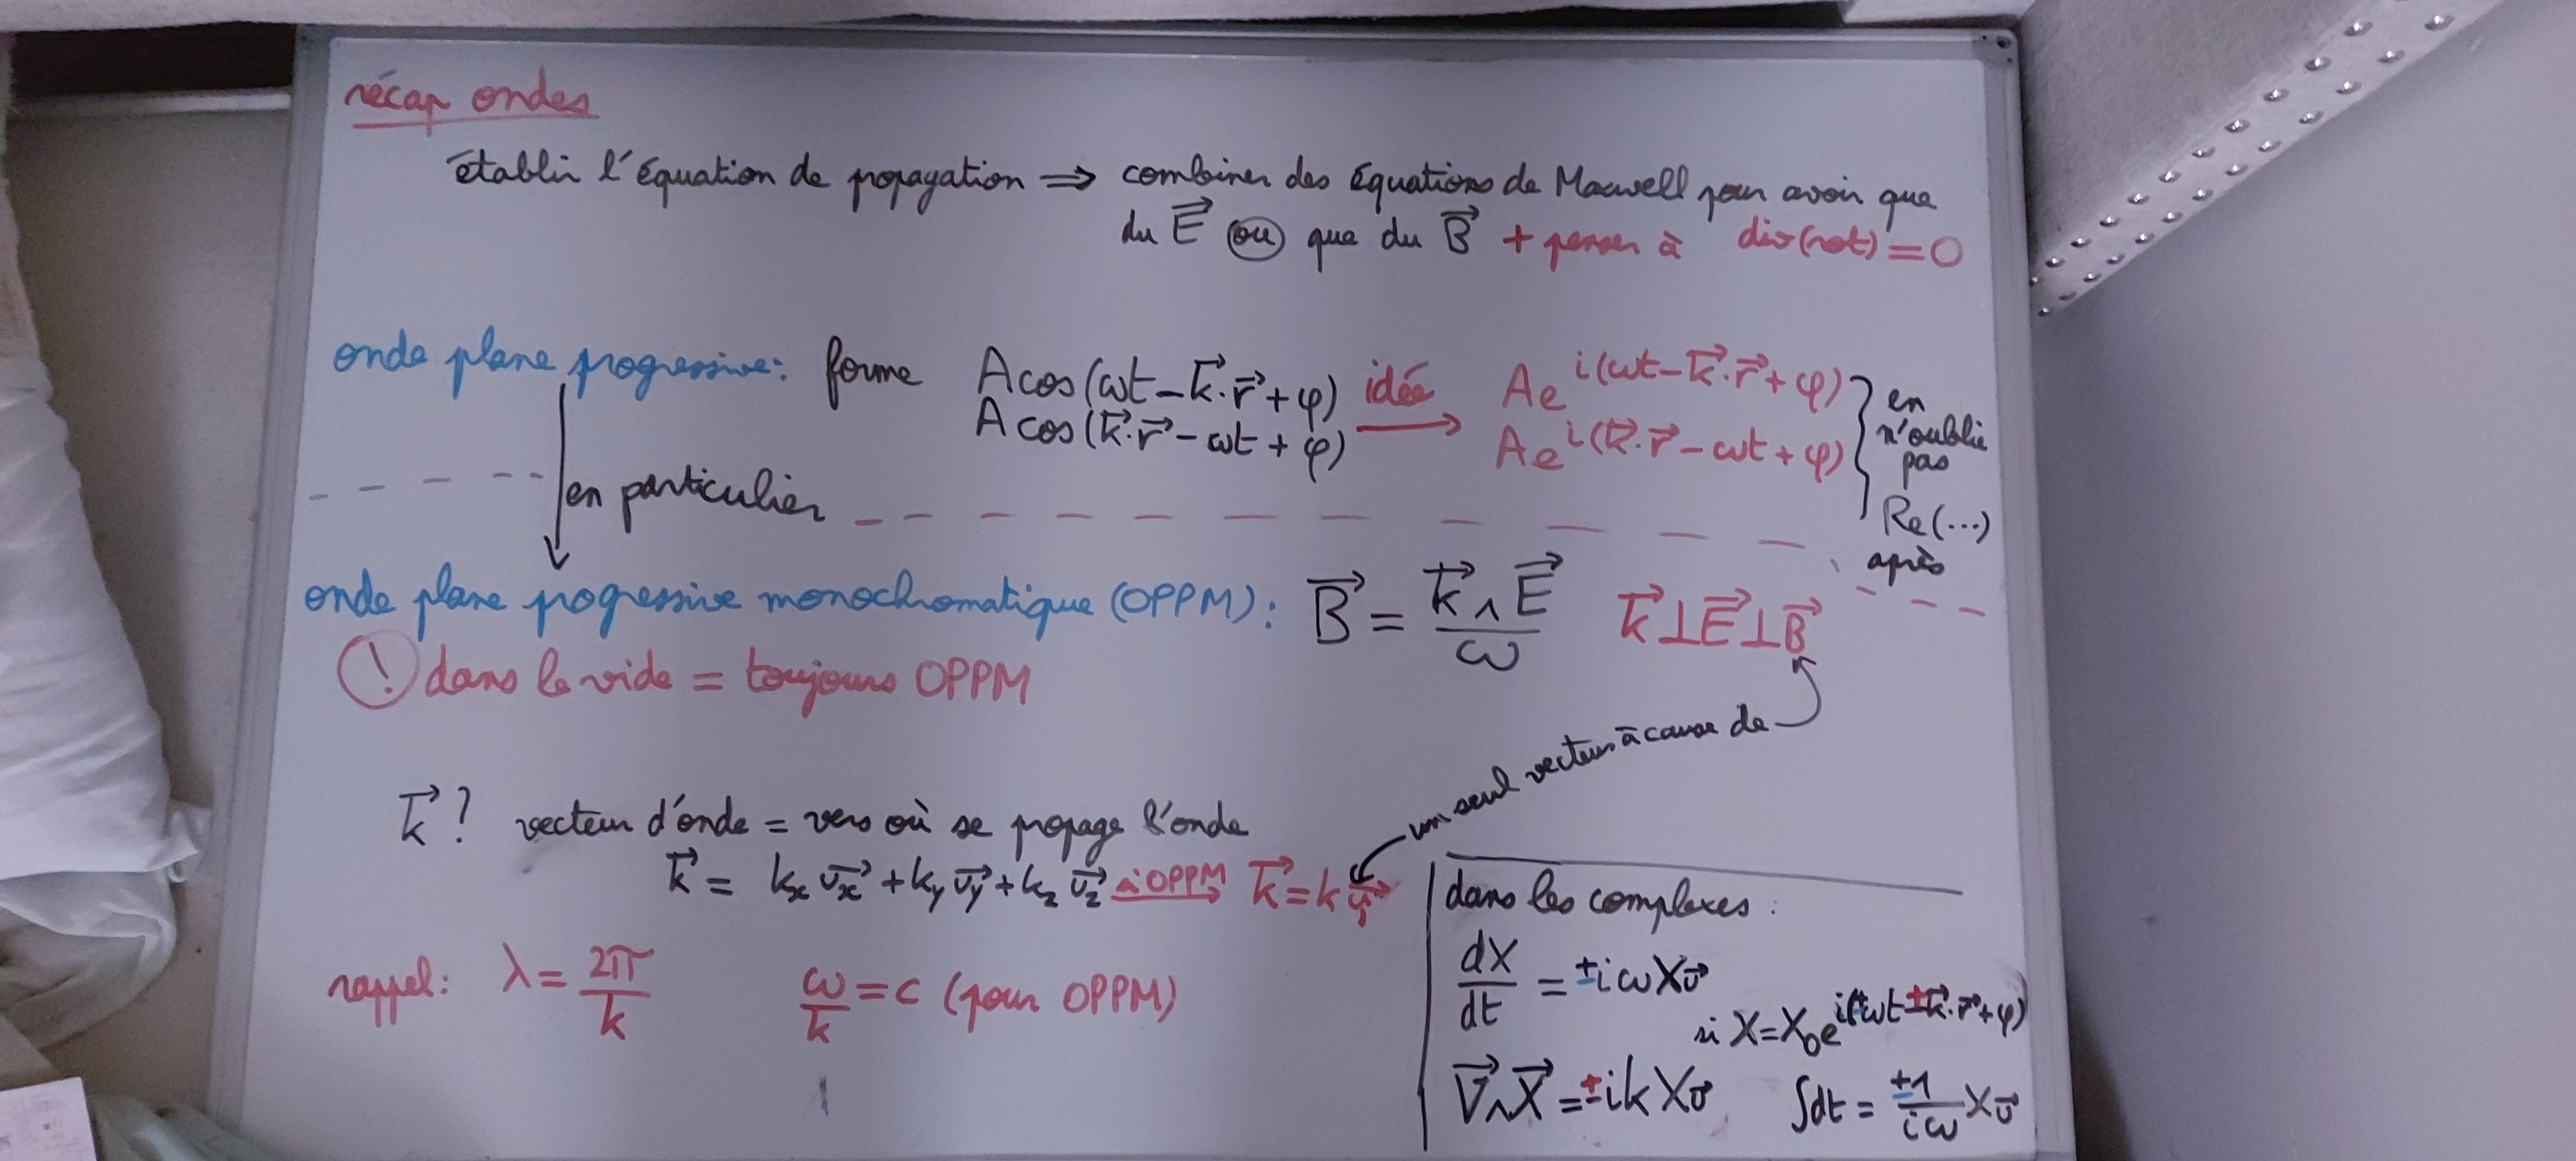 récap ondes
établir l'équation de propagation ⇒ combiner des équations de Maxwell pour avoir que
du E⃗ (ou) que du B⃗ + penser à div(rot) = 0
onde plane progressive: forme A cos(ωt - k⃗.r⃗ + φ) idée → A e^{i(ωt - k⃗.r⃗ + φ)}
A cos(k⃗.r⃗ - ωt + φ) A e^{i(k⃗.r⃗ - ωt + φ)}
en
n'oublie
pas
Re(...)
après
en particulier
onde plane progressive monochromatique (OPPM): B⃗ = (k⃗ ∧ E⃗)/ω k⃗ ⊥ E⃗ ⊥ B⃗
! dans le vide = toujours OPPM
un seul vecteur à cause de
k⃗ ? vecteur d'onde = vers où se propage l'onde
k⃗ = kx υx⃗ + ky υy⃗ + kz υz⃗ si OPPM → k⃗ = k υi⃗
rappel: λ = 2π/k ω/k = c (pour OPPM)
dans les complexes :
dX/dt = ±iωXυ⃗
si X = X₀e^{i(±ωt ± k⃗.r⃗ + φ)}
∇⃗∧X⃗ = ±ikXυ⃗ ∫dt = ±1/iω Xυ⃗